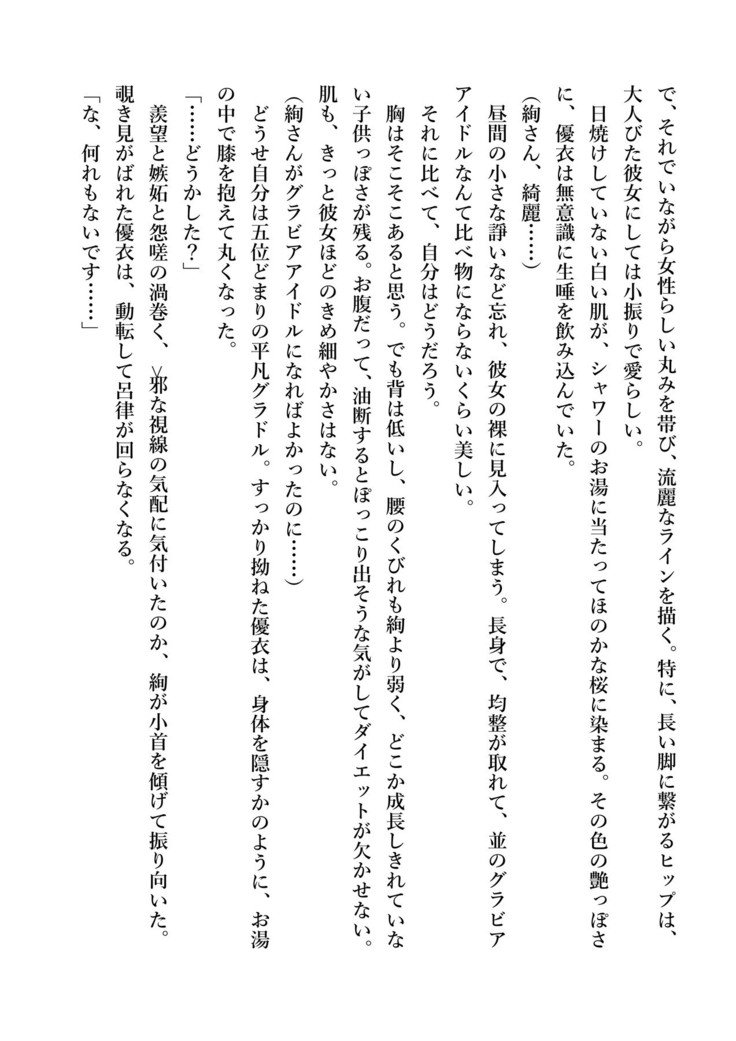 で、それでいながら女性らしい丸みを帯び、流麗なラインを描く。特に、長い脚に繋がるヒップは、
大人びた彼女にしては小振りで愛らしい。
　日焼けしていない白い肌が、シャワーのお湯に当たってほのかな桜に染まる。その色の艶っぽさ
に、優衣は無意識に生唾を飲み込んでいた。
（絢さん、綺麗……）
　昼間の小さな諍いなど忘れ、彼女の裸に見入ってしまう。長身で、均整が取れて、並のグラビア
アイドルなんて比べ物にならないくらい美しい。
　それに比べて、自分はどうだろう。
　胸はそこそこあると思う。でも背は低いし、腰のくびれも絢より弱く、どこか成長しきれていな
い子供っぽさが残る。お腹だって、油断するとぽっこり出そうな気がしてダイエットが欠かせない。
肌も、きっと彼女ほどのきめ細やかさはない。
（絢さんがグラビアアイドルになればよかったのに……）
　どうせ自分は五位どまりの平凡グラドル。すっかり拗ねた優衣は、身体を隠すかのように、お湯
の中で膝を抱えて丸くなった。
「……どうかした？」
　羨望と嫉妬と怨嗟の渦巻く、V邪な視線の気配に気付いたのか、絢が小首を傾げて振り向いた。
覗き見がばれた優衣は、動転して呂律が回らなくなる。
「な、何れもないです……」